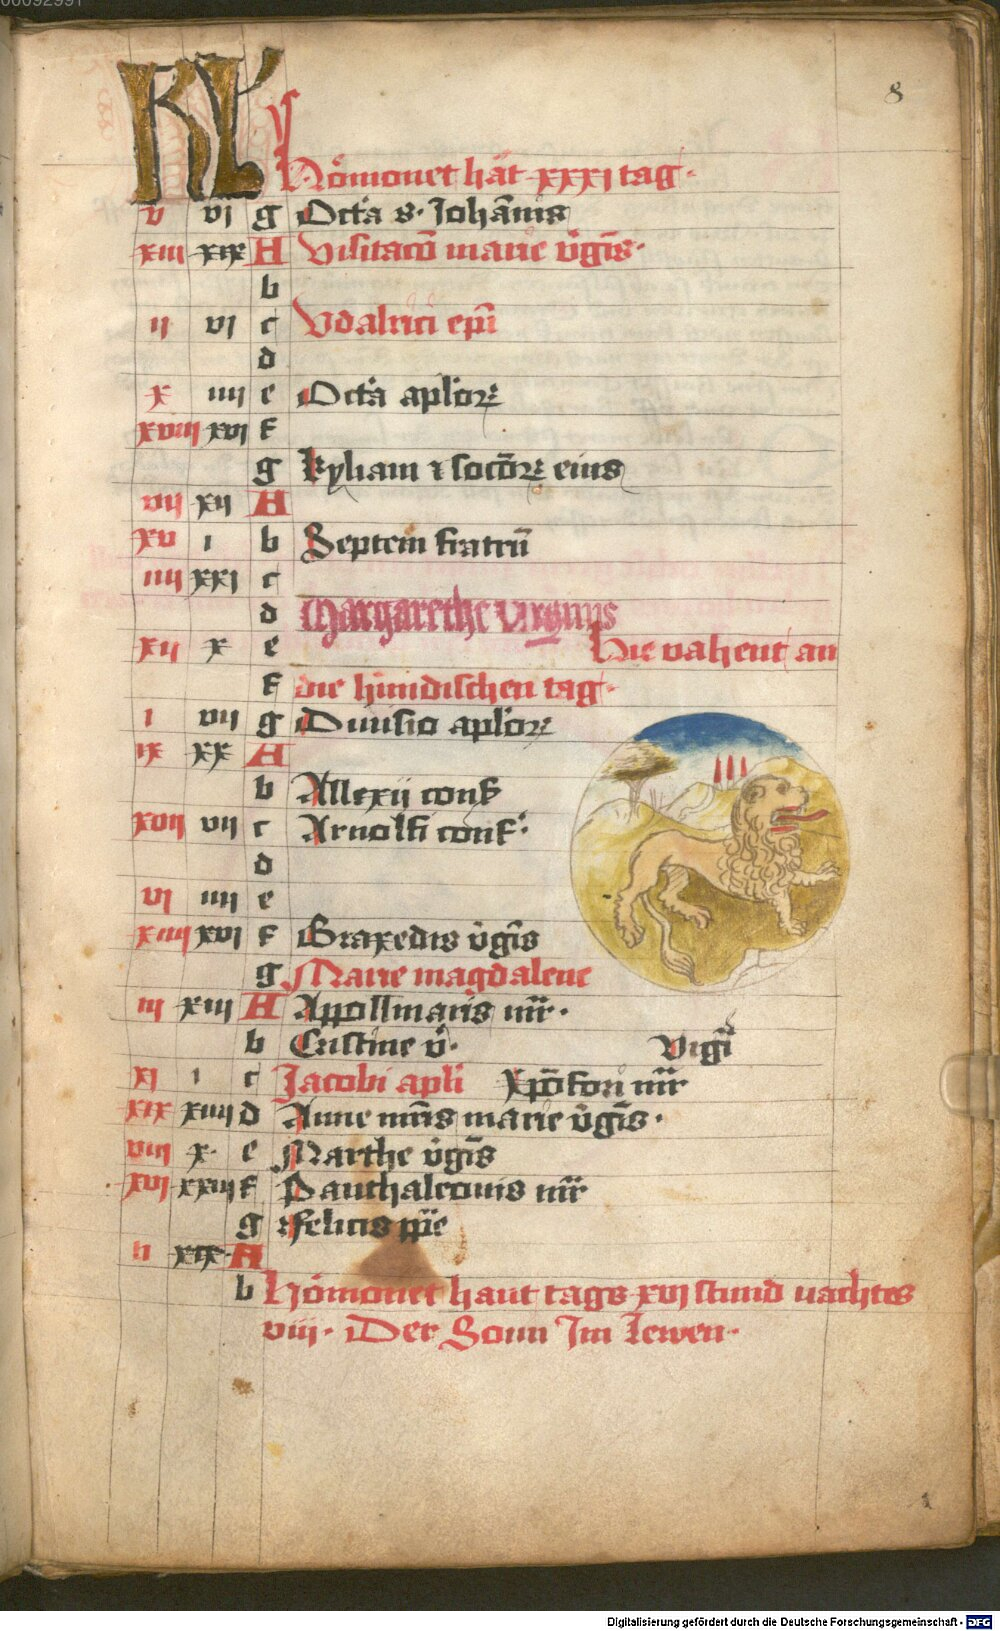 00092991
8
KL
Hömonet hät xxxi tag.
v vi g Octa s. Johānis
xiii xix A Visitacō marie v̓gīs.
b
ii vi c Vdalrici epī
d
x iiii e Octa aplorꝝ
xviii xvi f
g Kyliani ⁊ socōrꝝ eius
vii xii A
xv i b Septem fratrū
iiii xxi c
d Margarethe virginis
xii x e Hie vahent an
f die hundischen tag.
i vii g Diuisio aplorꝝ
ix xx A
b Allexij conf
xvii vii c Arnolfi conf.
d
vi iiii e
xiiii xvi f Braxedis v̓gīs
g Marie magdalene
iii xiii A Appollinaris mr̄.
b Cristine v̓. Vigī
xi i c Jacobi apli Xp̄ofori mr̄
xix xiiii d Anne mr̄is marie v̓gīs.
viii x. e Marthe v̓gīs
xvi xxiii f Panthaleonis mr̄
g Felicis pp̄e
ii xix. A
b Hömonet haut tags xvi stund nachtes
viii. Der Sonn Im Lewen.
1
Digitalisierung gefördert durch die Deutsche Forschungsgemeinschaft - DFG